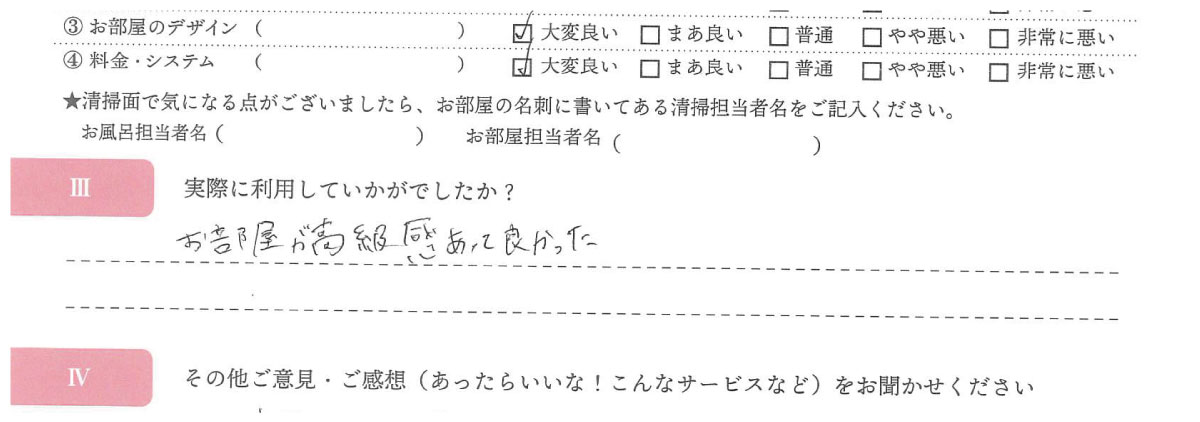 ③ お部屋のデザイン ( ) ☑ 大変良い □ まあ良い □ 普通 □ やや悪い □ 非常に悪い
④ 料金・システム ( ) ☑ 大変良い □ まあ良い □ 普通 □ やや悪い □ 非常に悪い
★清掃面で気になる点がございましたら、お部屋の名刺に書いてある清掃担当者名をご記入ください。
お風呂担当者名 ( ) お部屋担当者名 ( )
Ⅲ 実際に利用していかがでしたか？
お部屋が高級感あって良かった
Ⅳ その他ご意見・ご感想（あったらいいな！こんなサービスなど）をお聞かせください